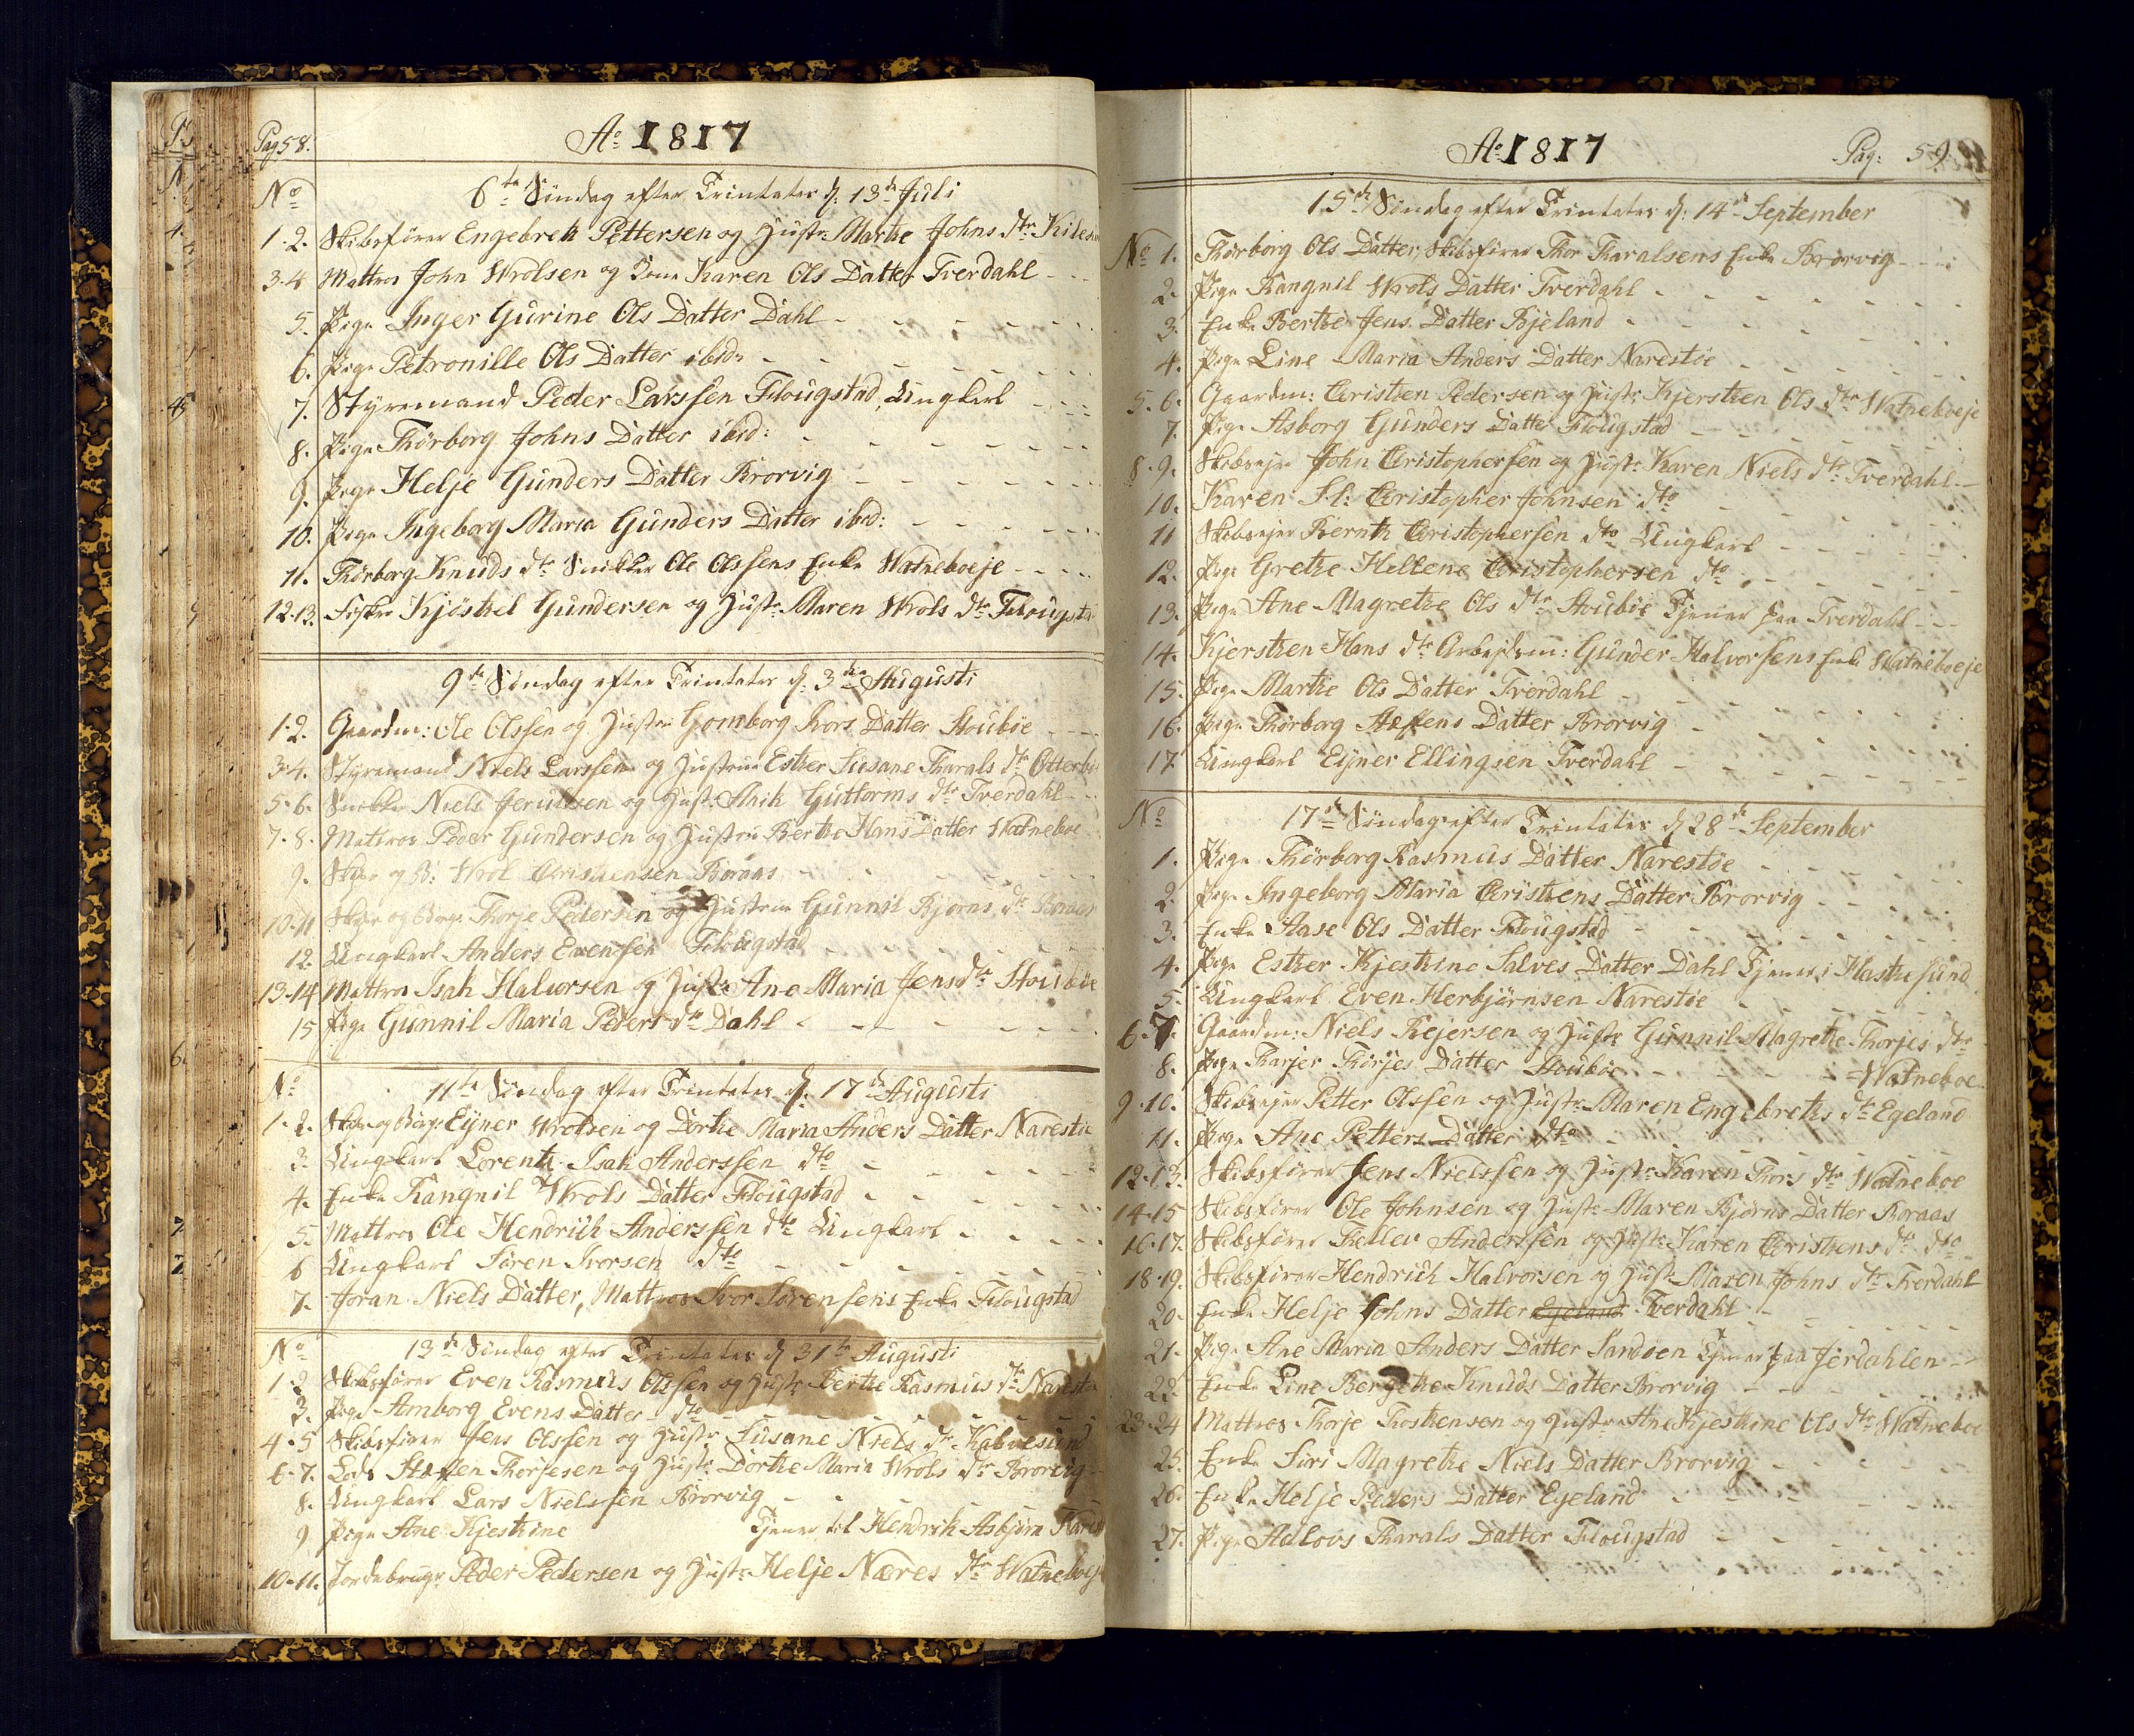 Pag 58.
Ao 1817
No
6te Söndag efter Trinitates d. 13de Juli
1-2. Skibsförer Engebreth Pettersen og Hustr: Marthe Johns dtr Kilesund
3-4 Mattros John Wrolsen og Kone Karen Ols Datter Tverdahl
5. Pige Inger Gurine Ols Datter Dahl
6. Pige Petronille Ols Datter ibid:
7. Styremand Peder Larssen Flougstad, Ungkarl
8. Pige Thörborg Johns Datter ibid:
9. Pige Helje Gunders Datter Brorvig
10. Pige Ingeborg Maria Gunders Datter ibid:
11. Thörborg Knuds dtr Snikker Ole Olssens Enke Watneboeje
12-13. Fisker Kjösthel Gundersen og Hustr: Maren Wrols dtr Flougsta
9de Söndag efter Trinitates d. 3die Augusti
1-2. Gaardm: Ole Olssen og Hustru Gomborg Ivors Datter Stouböe
3-4. Styremand Niels Larssen og Hustrue Esther Susane Tharals dtr Otterbe
5-6. Snikker Niels Jerulfsen og Hustr: Anih Guttorms dtr Tverdahl
7-8. Mattros Peder Gundersen og Hustru Berthe Hans Datter Watneboe
9. Skper og B: Wrol Christensen Boraas
10-11 Skper og Borge Thorje Pedersen og Hustrue Gunnil Bjørns dtr Boraas
12. Ungkarl Anders Evensen Flougstad
13-14 Mattros Isak Halvorsen og Hustr: Ane Maria Jens dtr Stouböe
15 Pige Gunnil Maria Peders dtr Dahl
No
11te Söndag efter Trinitates d. 17de Augusti
1-2. Skper og Borge: Ejner Wrolsen og Dorthe Maria Anders Datter Narestöe
3. Ungkarl Lorentz Isak Anderssen dto
4. Enke Rangnil Wrols Datter Flougstad
5. Mattros Ole Hendrich Anderssen dto Ungkarl
6 Ungkarl Sören Ivorsen dto
7. Joran Niels Datter, Mattros Ivor Sörensens Enke Flougstad
No
13de Söndag efter Trinitates d. 31te Augusti
1-2 Skibsförer Even Rasmus Olssen og Hustr: Berthe Rasmus dtr Narestö
3. Pige Amborg Evens Datter dto
4-5 Skibsförer Jens Olssen og Hustr: Susane Niels dtr Kalvesund
6-7. Lods Steffen Thorjesen og Hustr: Dorthe Maria Wrols dtr Brorvig
8. Ungkarl Lars Nielssen Brorvig
9 Pige Ane Kjesthine Tjener til Hendrik Asbjörn
10-11. Jordebruger Peder Pedersen og Hustr: Helje Næres dtr Watneboeje
Ao 1817
Pag: 59
15de Söndag efter Trinitates d. 14de September
No 1. Thörborg Ols Datter, Skibsförer Thor Tharalsens Enke Brorvig
2. Pige Rangnil Wrols Datter Tverdahl
3. Enke Berthe Jens Datter Bjeland
4. Pige Line Maria Anders Datter Narestöe
5-6. Gaardm: Christhen Pedersen og Hustr: Kjersthen Ols dtr Watneboeje
7. Pige Asborg Gunders Datter Flougstad
8-9. Skibsejer John Christophersen og Hustr: Karen Niels dtr Tverdahl
10. Karen Sl: Christopher Johnsen dto
11 Skibsejer Bernth Christophersen dto Ungkarl
12. Pige Grethe Hellene Christophersen dto
13. Pige Ane Magrethe Ols dtr Stouböe Tjener paa Tverdahl
14. Kjersthen Hans dtr Arbejdsm: Gunder Halvorsens Enke Watneboeje
15. Pige Marthe Ols Datter Tverdahl
16. Pige Thörborg Steffens Datter Brorvig
17 Ungkarl Ejner Ellingsen Tverdahl
No
17de Söndag efter Trinitates d. 28de September
1. Pige Thörborg Rasmus Datter Narestöe
2. Pige Ingeborg Maria Christhens Datter Brorvig
3. Enke Aase Ols Datter Flougstad
4. Pige Esther Kjesthine Salves Datter Dahl Tjener i Hasthesund
5. Ungkarl Even Herbjörnsen Narestöe
6-7. Gaardm: Niels Rejersen og Hustr: Gunnil Magrethe Thorjes dtr
8. Pige Tharjer Thorjes Datter Stouböe Watneboe
9-10. Skibsejer Petter Olssen og Hustr: Maren Engebreths dtr Egeland
11. Pige Ane Petters Datter dto
12-13. Skibsförer Jens Nielssen og Hustr: Karen Thors dtr Watneboe
14-15 Skibsförer Ole Johnsen og Hustr: Maren Bjørns Datter Boraas
16-17. Skibsförer Thellev Anderssen og Hustr: Karen Christhens dtr dto
18-19. Skibsförer Hendrich Halvorsen og Hustr: Maren Johns dtr Tverdahl
20. Enke Helje Johns Datter Egeland Tverdahl
21. Pige Ane Maria Anders Datter Sandöen Tjener paa Jerdahlen
22. Enke Line Bergethe Knuds Datter Brorvig
23-24 Mattros Thorje Thosthensen og Hustr: Ane Kjesthine Ols dtr Watneboe
25. Enke Siri Magrethe Niels Datter Brorvig
26. Enke Helje Peders Datter Egeland
27. Pige Adlovs Tharals Datter Flougstad